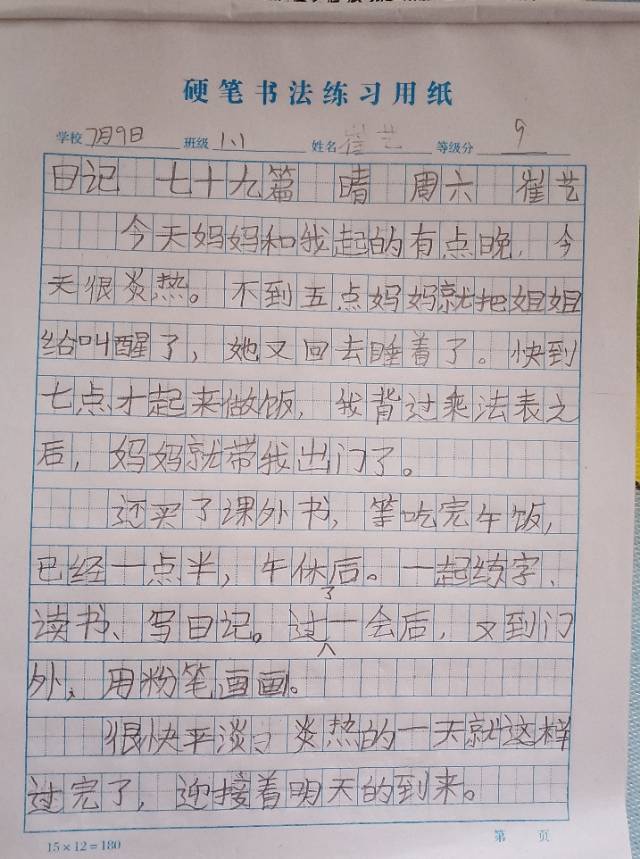 硬笔书法练习用纸
学校 7月9日 班级 1、1 姓名 崔艺 等级分 9
日记 七十九篇 晴 周六 崔艺
今天妈妈和我起的有点晚，今
天很炎热。不到五点妈妈就把姐姐
给叫醒了，她又回去睡着了。快到
七点才起来做饭，我背过乘法表之
后，妈妈就带我出门了。
还买了课外书，等吃完午饭，
已经一点半，午休后。一起练字、
读书、写日记。过了一会后，又到门
外，用粉笔画画。
很快平淡又炎热的一天就这样
过完了，迎接着明天的到来。
15×12=180
第 页